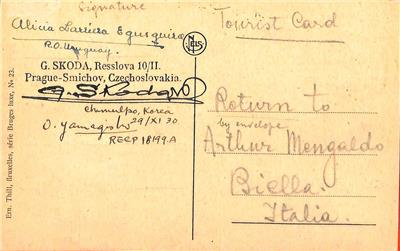 Signature
Alicia Larriera Egusquiza
R.O. Uruguay.
G. SKODA, Resslova 10/II.
Prague-Smichov, Czechoslovakia.
G. Skoda
Chemulpo, Korea
O. Yamagishi 29/XI 30
RECP 18199A
Ern. Thill, Bruxelles, série Bruges luxe, No 23.
NELS
Tourist Card
Return to
by envelope
Arthur Mengaldo
Biella.
Italia.